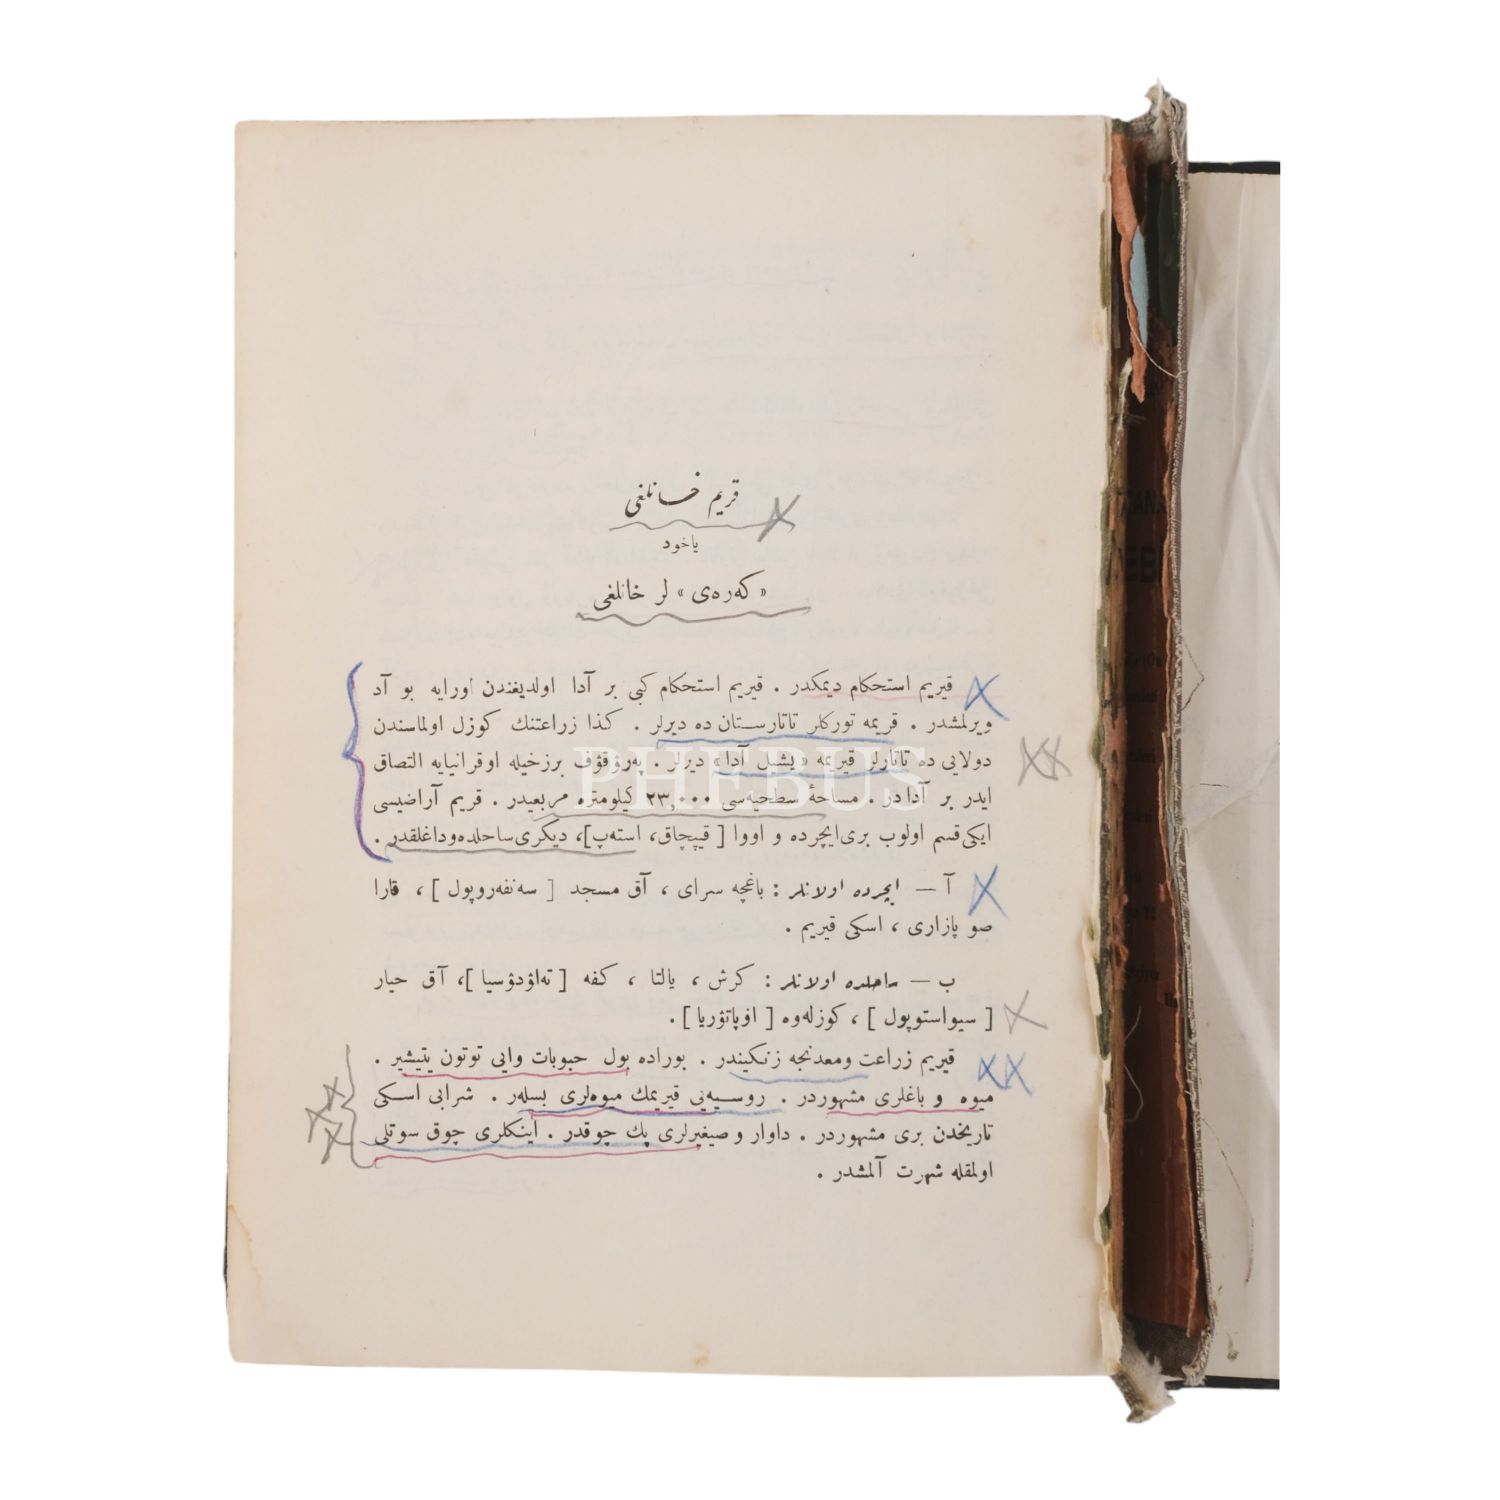 قريم خانلغى
ياخود
«كه‌ره‌ى» لر خانلغى
قيريم استحكام ديمكدر . قيريم استحكام كبى بر آدا اولديغندن اورايه بو آد
ويرلمشدر . قريمه توركلر تاتارستان ده ديرلر . كذا زراعتنك كوزل اولماسندن
دولايى ده تاتارلر قيريمه «يشيل آدا» ديرلر . په‌رۆقۆف برزخيله اوقرانيايه التصاق
ايدر بر آدا در . مساحۀ سطحيه‌سى ٢٣,٠٠٠ كيلومتره مربعيدر . قريم آراضيسى
ايكى قسم اولوب برى ايچرده و اووا [ قيپچاق، استه‌پ]، ديكرى ساحلده و داغلقدر .
آ — ايچرده اولانلر : باغچه سراى ، آق مسجد [ سه‌نفه‌روپول ] ، قارا
صو پازارى ، اسكى قيريم .
ب — ساحلده اولانلر : كرش ، يالتا ، كفه [ ته‌اۆدۆسيا ]، آق حيار
[ سيواستوپول ] ، كوزله‌وه [ اۆپاتۆريا ] .
قيريم زراعت ومعدنجه زنكيندر . بوراده بول حبوبات وايى توتون يتيشير .
ميوه و باغلرى مشهوردر . روسيه‌يى قيريمك ميوه‌لرى بسله‌ر . شرابى اسكى
تاريخدن برى مشهوردر . داوار و صيغيرلرى پك چوقدر . اينكلرى چوق سوتلى
اولمقله شهرت آلمشدر .
PHEBUS